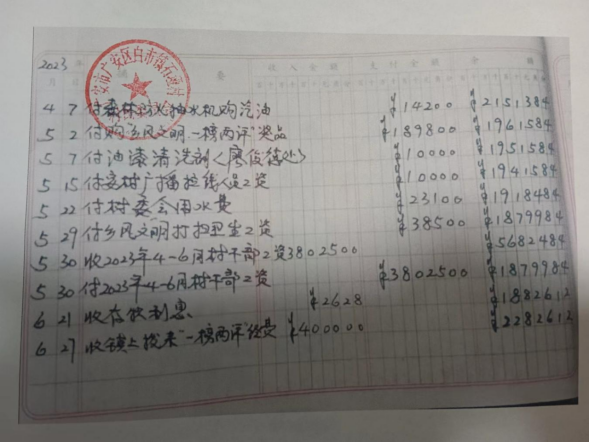 安市广安区白市镇
2023 年 摘 要 收入金额 支付金额 余 额
月 日
4 7 付森林防火抽水机购汽油 ¥14200 ¥2151384
5 2 付购乡风文明"一榜两评"奖品 ¥189800 ¥1961584
5 7 付油漆清洗剂(廖俊德处) ¥10000 ¥1951584
5 15 付安村广播拉线人员工资 ¥10000 ¥1941584
5 22 付村委会用水费 ¥23100 ¥1918484
5 29 付乡风文明打扫卫生工资 ¥38500 ¥1879984
5 30 收2023年4-6月村干部工资 3802500 ¥5682484
5 30 付2023年4-6月村干部工资 ¥3802500 ¥1879984
6 21 收存款利息 ¥2628 ¥1882612
6 27 收镇上拨来"一榜两评"经费 ¥400000 ¥2282612